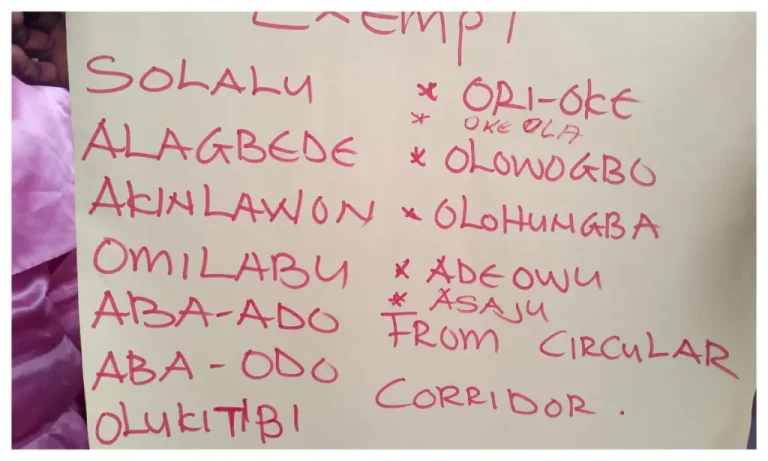 EXEMPT
SOLALU
ALAGBEDE
AKINLAWON
OMILABU
ABA-ADO
ABA-ODO
OLUKITIBI
* ORI-OKE
* OKE OLA
* OLOWOGBO
* OLOHUNGBA
* ADEOWU
* ASAJU
FROM CIRCULAR
CORRIDOR.